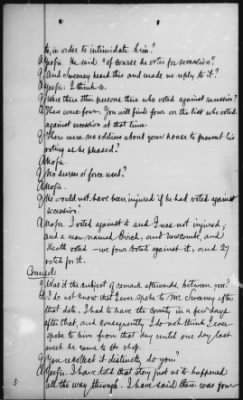 to, in order to intimidate him?
A Yes sir. He said "of course he votes for secession".
Q And Sweeney heard this and made no reply to it?
A Yes sir: I think so.
Q Were there three persons there who voted against secession?
A There were four. You will find four on the list who voted
against secession at that time.
Q There were no soldiers about your house to prevent his
voting as he pleased?
A No sir.
Q No threats or force used?
A No sir.
Q He would not have been injured if he had voted against
secession?
A No sir. I voted against it and I was not injured;
and a man named Birch, and Newcomb, and
Heath voted - we four voted against it, and 27
voted for it.
Counsel:
Q Was it the subject of remark afterwards, between you?
A I do not know that I ever spoke to Mr. Sweeney after
that date. I had to leave the county in a few days
after that, and consequently I do not think I ever
spoke to him from that day until one day
last week he came to the shop.
Q You recollect it distinctly do you?
A Yes sir. I have told that story just as it happened
all the way through. I have said there was four